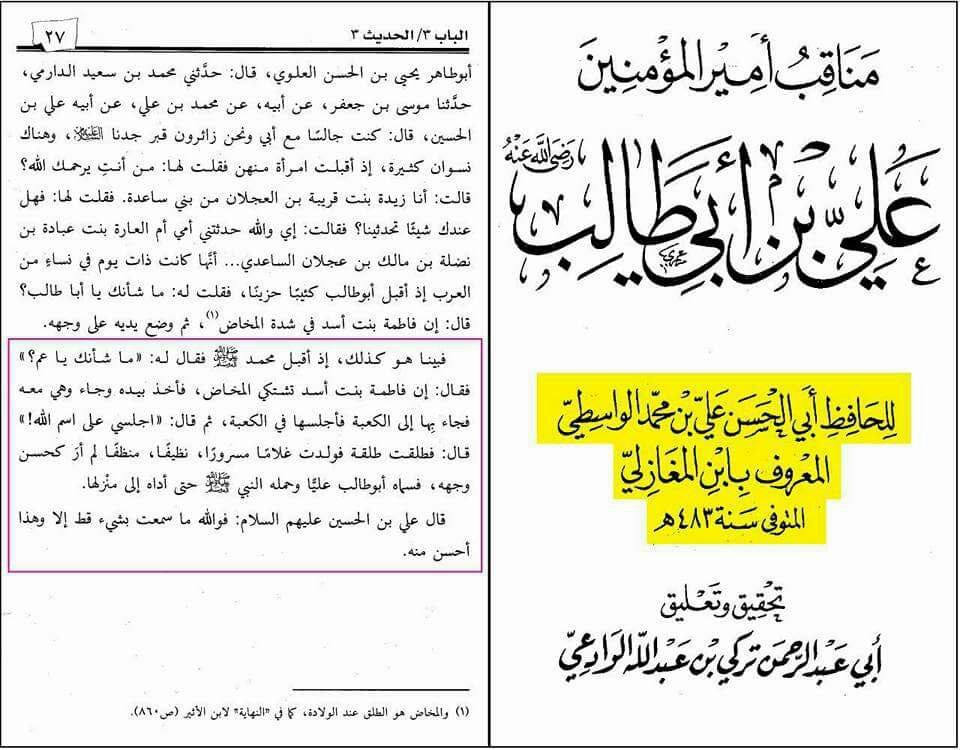 مَنَاقِبُ أَمِيرِ المُؤْمِنِينَ
عَلِيِّ بْنِ أَبِي طَالِبٍ رَضِيَ اللَّهُ عَنْهُ
لِلحَافِظِ أَبِي الحَسَنِ عَلِيِّ بْنِ مُحَمَّدٍ الوَاسِطِيِّ
المَعْرُوفِ بِابْنِ المَغَازِلِيِّ
المتوفى سَنَة ٤٨٣هـ
تحقيق وتعليق
أبي عَبْدِ الرَّحْمَنِ تركي بْنِ عَبْدِ اللهِ الوَادِعِيِّ
الباب ٣/ الحديث ٣
٢٧
أبوطاهر يحيى بن الحسن العلوي، قال: حدَّثني محمد بن سعيد الدارمي،
حدَّثنا موسى بن جعفر، عن أبيه، عن محمد بن علي، عن أبيه علي بن
الحسين، قال: كنت جالسًا مع أبي ونحن زائرون قبر جدنا عليه السلام، وهناك
نسوان كثيرة، إذ أقبلت امرأة منهن فقلت لها: من أنتِ يرحمك الله؟
قالت: أنا زيدة بنت قريبة بن العجلان من بني ساعدة. فقلت لها: فهل
عندك شيئًا تحدثينا؟ فقالت: إي والله حدثتني أمي أم العارة بنت عبادة بن
نضلة بن مالك بن عجلان الساعدي... أنَّها كانت ذات يوم في نساءٍ من
العرب إذ أقبل أبوطالب كئيبًا حزينًا، فقلت له: ما شأنك يا أبا طالب؟
قال: إن فاطمة بنت أسد في شدة المخاض(١)، ثم وضع يديه على وجهه.
فبينا هو كذلك، إذ أقبل محمد ﷺ فقال له: «ما شأنك يا عم؟»
فقال: إن فاطمة بنت أسد تشتكي المخاض، فأخذ بيده وجاء وهي معه
فجاء بِها إلى الكعبة فأجلسها في الكعبة، ثم قال: «اجلسي على اسم الله!»
قال: فطلقت طلقة فولدت غلامًا مسرورًا، نظيفًا، منظفًا لم أرَ كحسن
وجهه، فسماه أبوطالب عليًّا وحمله النبي ﷺ حتى أداه إلى منْزلها.
قال علي بن الحسين عليهم السلام: فوالله ما سمعت بشيء قط إلا وهذا
أحسن منه.
(١) والمخاض هو الطلق عند الولادة، كما في "النهاية" لابن الأثير (ص٨٦٠).